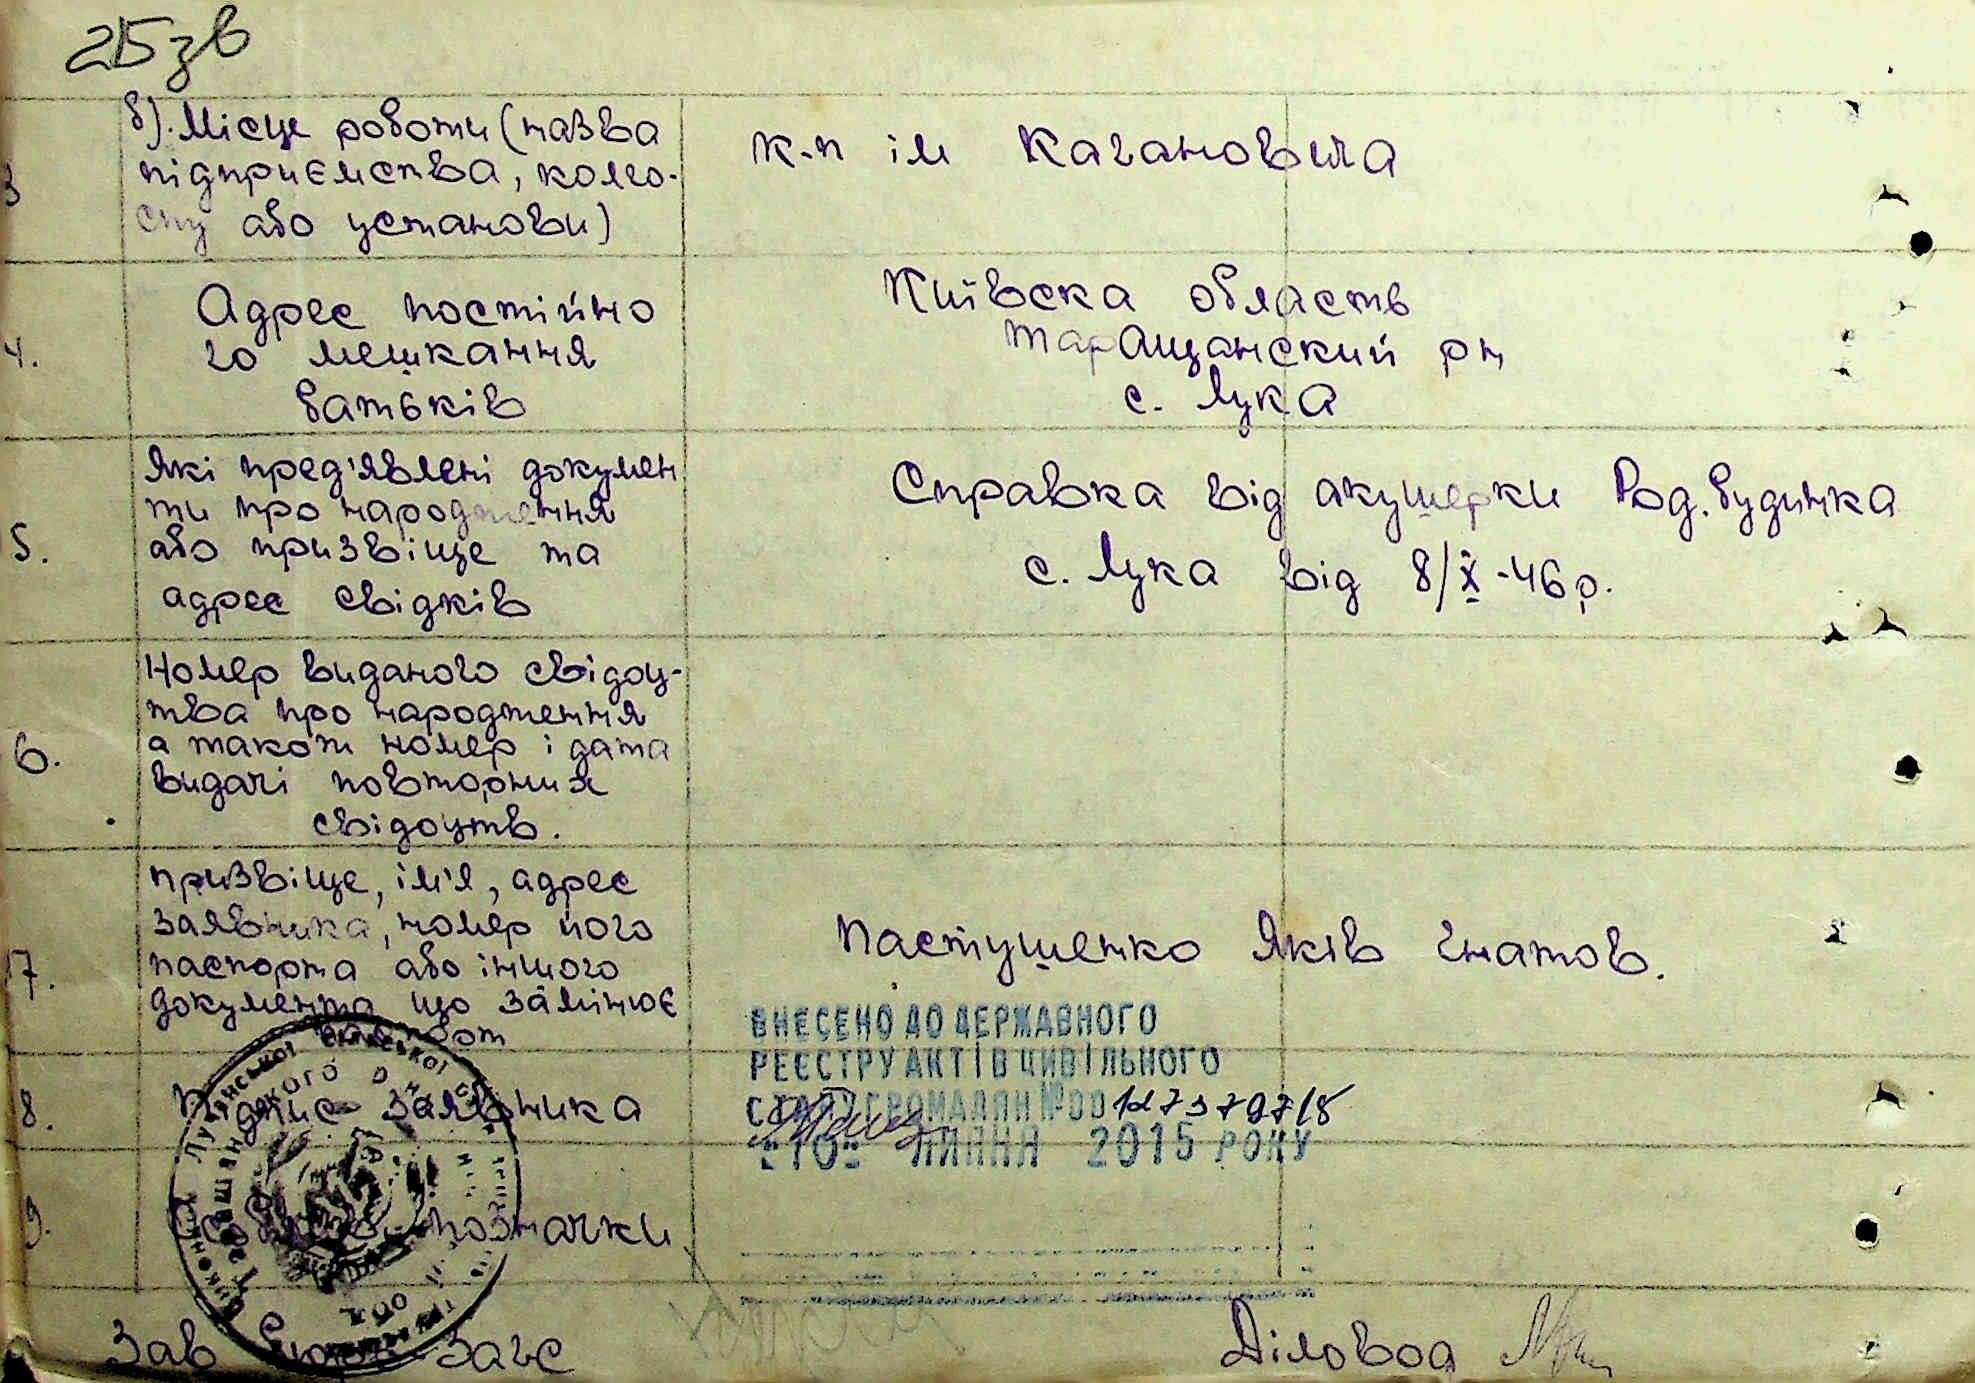 25зв
б). Місце роботи (назва
підприємства, колго-
спу або установи)
к-п ім Кагановича
4.
Адрес постійно
го мешкання
батьків
Київска область
Таращанский рн
с. Лука
5.
Які пред'явлені докумен
ти про народження
або призвіще та
адрес свідків
Справка від акушерки Род. будинка
с. Лука від 8/X-46 р.
6.
Номер виданого свідоц-
тва про народження
а також номер і дата
видачі повторних
свідоцтв.
7.
призвіще, ім'я, адрес
заявника, номер його
паспорта або іншого
документа що замінює
паспорт
Пастушенко Яків Гнатов.
ВНЕСЕНО ДО ДЕРЖАВНОГО
РЕЄСТРУ АКТІВ ЦИВІЛЬНОГО
СТАНУ ГРОМАДЯН №00
"10" ЛИПНЯ 2015 РОКУ
8.
Підпис заявника
9.
Особливі позначки
Зав Бюро Загс
Діловод